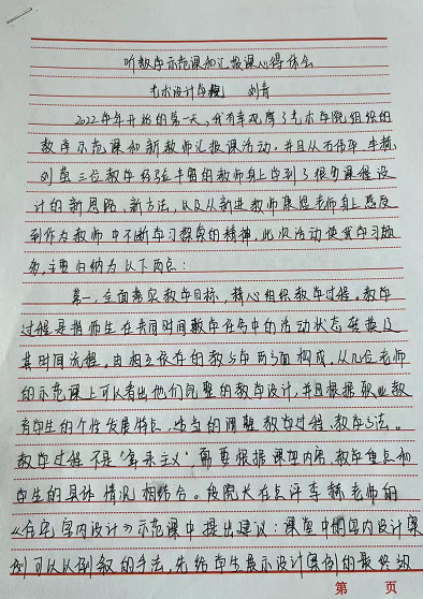 听教学示范课和汇报课心得体会
艺术设计学院 刘青
2022年年开始的第一天,我有幸观摩了艺术学院组织的
教学示范课和新教师汇报课活动,并且从石伟华、李赫、
刘萤三位教学经验丰富的教师身上学到了很多课程设
计的新思路、新方法,以及从新进教师康煜老师身上感受
到作为教师中不断学习探索的精神,此次活动使我学习颇
多,主要归纳为以下两点:
第一,全面落实教学目标,精心组织教学过程。教学
过程是指师生在共同时间教学任务中的活动状态转换及
其时间流程。由相互依存的教与学两方面构成。从几位老师
的示范课上可以看出他们完整的教学设计,并且根据职业教
育学生的个性发展特点,适当的调整教学过程、教学方法。
教学过程不是“拿来主义”,需要根据课程内容、教学重点和
学生的具体情况相结合。段院长在点评李赫老师的
《住宅室内设计》示范课中提出建议:课堂中的室内设计案
例可以从倒叙的手法,先给学生展示设计案例的最终效
第 页